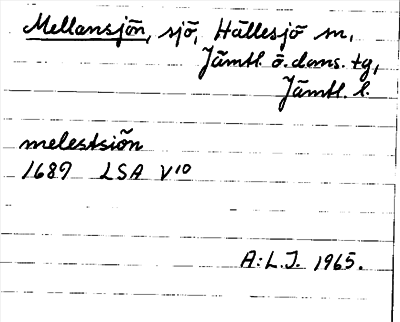 Mellansjön, sjö, Hällesjö sn,
Jämtl. ö. doms. tg,
Jämtl. l.
melestsiön
1689 LSA V¹⁰
A:L.J. 1965.